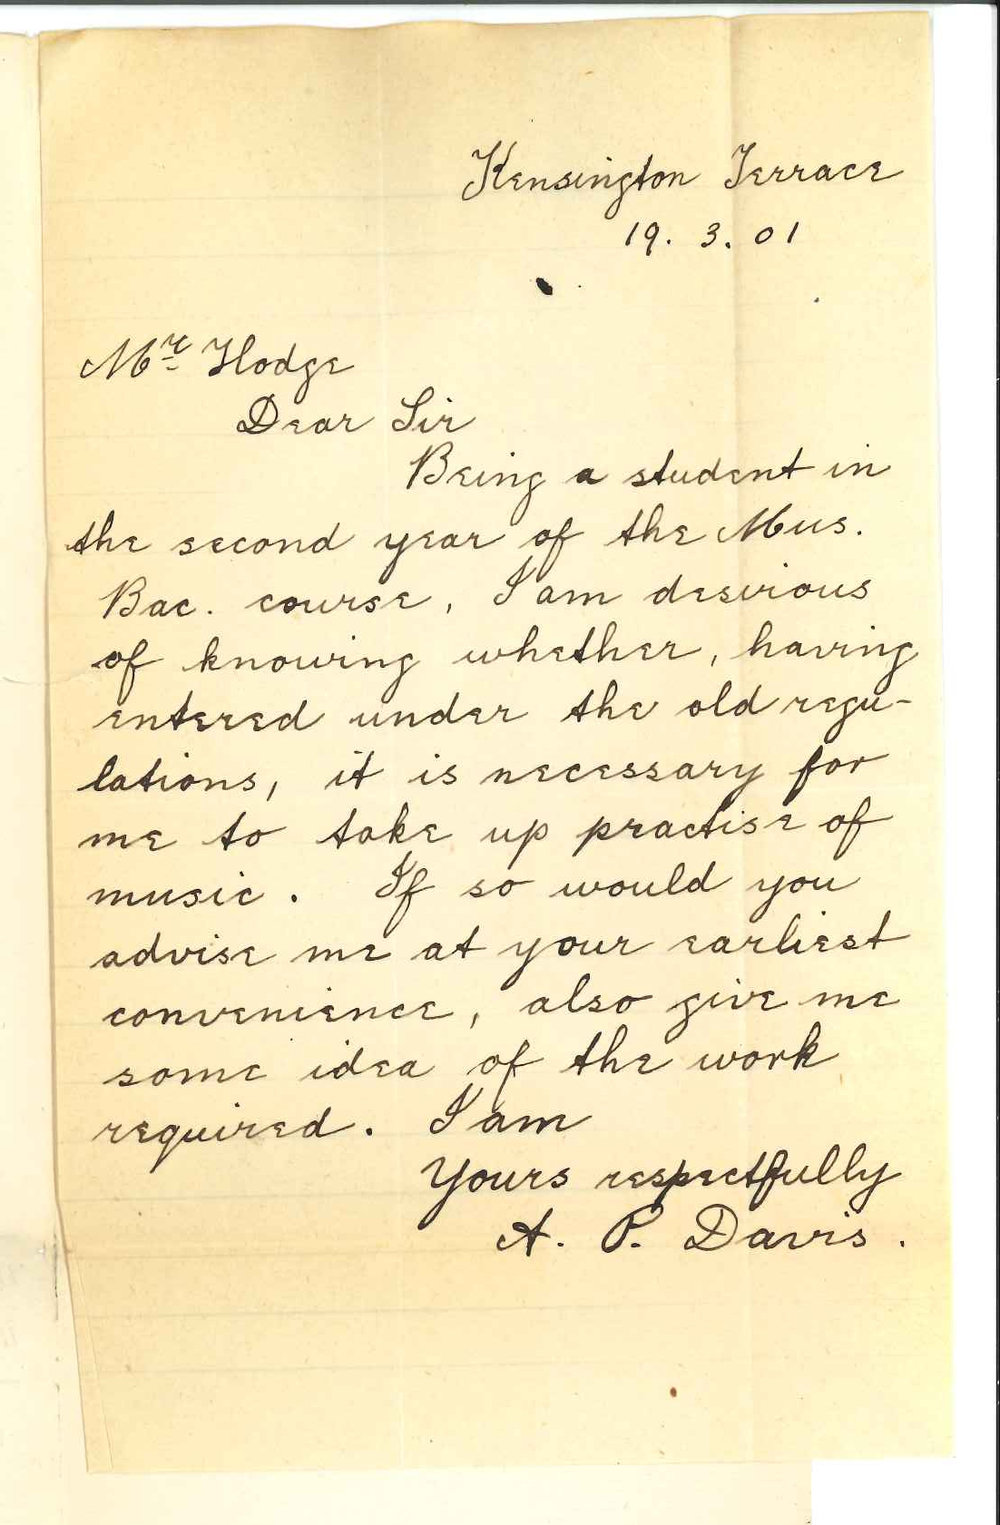 Kensington Terrace
19. 3. 01
Mr. Hodge
Dear Sir
Being a student in
the second year of the Mus.
Bac. course, I am desirous
of knowing whether, having
entered under the old regu-
lations, it is necessary for
me to take up practise of
music. If so would you
advise me at your earliest
convenience, also give me
some idea of the work
required. I am
Yours respectfully
A. P. Davis.